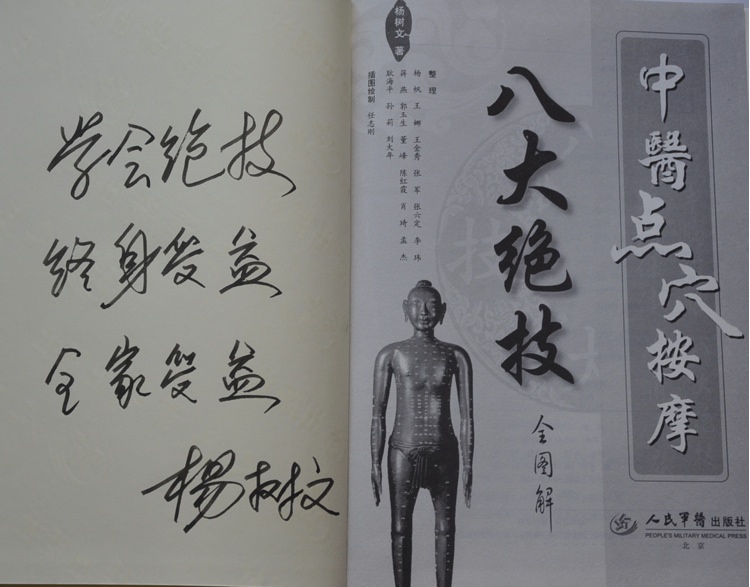 学会绝技
终身受益
全家受益
杨树文
中醫点穴按摩
八大绝技
全图解
杨树文 著
整理
杨帆 王娜 王金秀 张军 张六定 李玮
蒋燕 郭玉生 董峰 陈红霞 肖琦 孟杰
耿海平 孙莉 刘大年
插图绘制 任志刚
人民军医出版社
PEOPLE'S MILITARY MEDICAL PRESS
北京